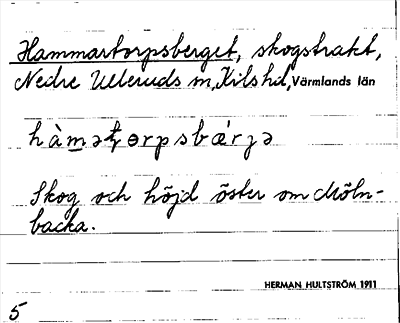 Hammartorpsberget, skogstrakt,
Nedre Ulleruds sn, Kils hd, Värmlands län
hàməʈɵrpsbǽrjə
Skog och höjd öster om Möln-
backa.
HERMAN HULTSTRÖM 1911
5